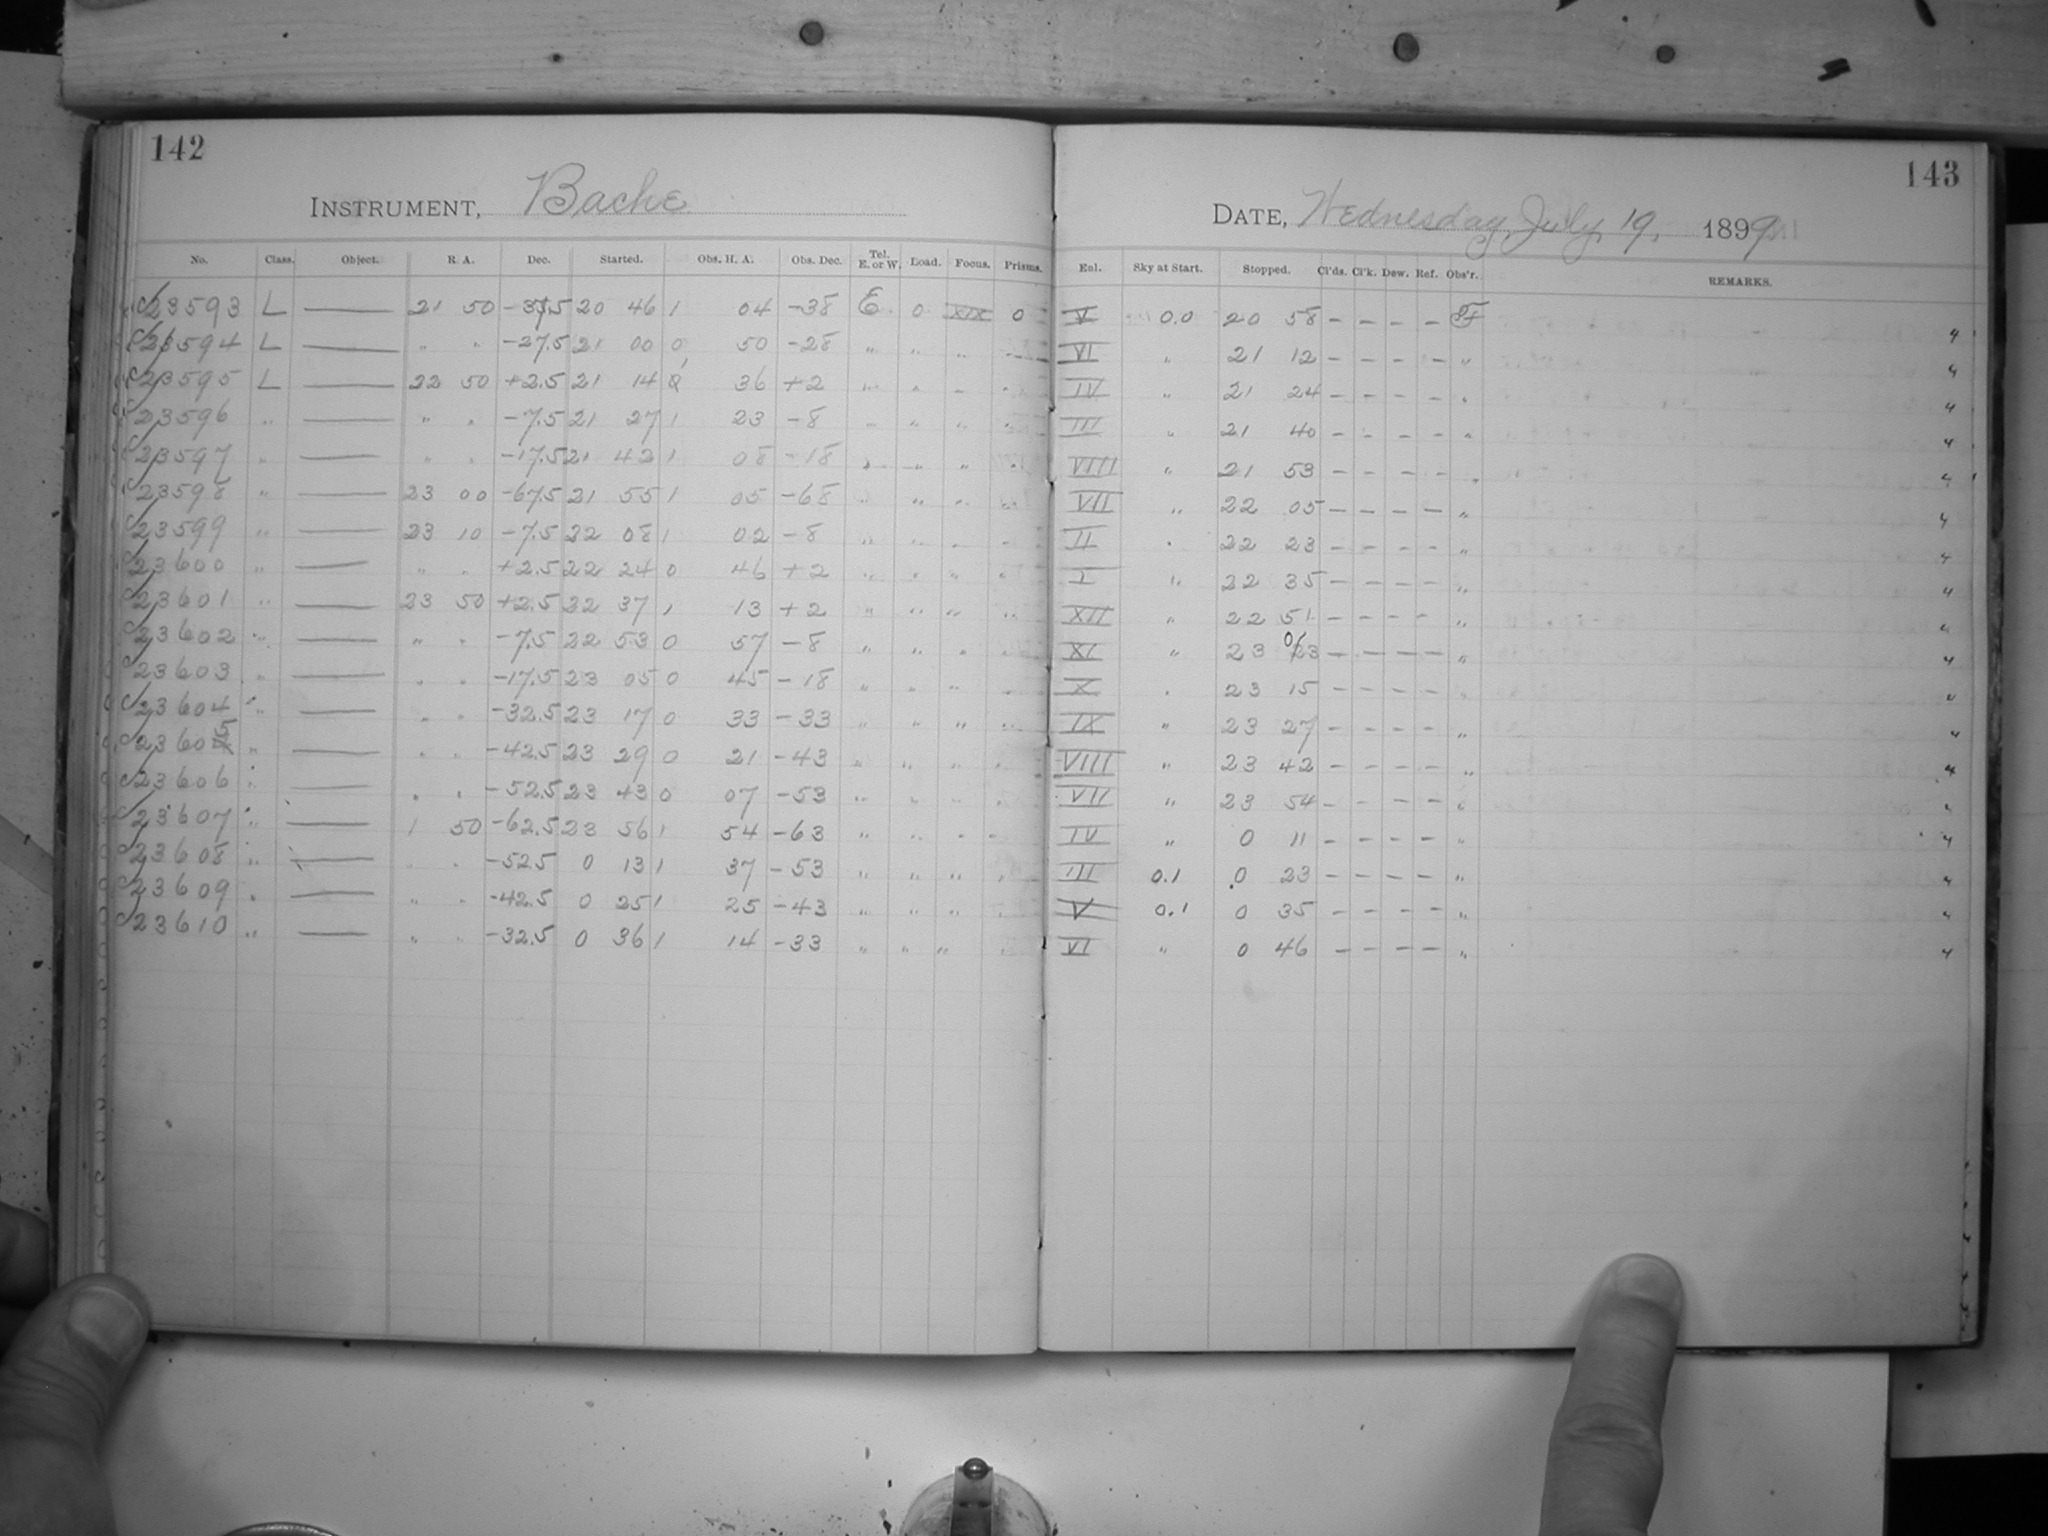 142
INSTRUMENT, Bache
No. Class. Object. R. A. Dec. Started. Obs. H. A. Obs. Dec. Tel. E. or W. Load. Focus. Prisms.
23593 L —— 21 50 -37.5 20 46 1 04 -38 E. 0 XIX 0
23594 L —— " " -27.5 21 00 0 50 -28 " " " "
23595 L —— 22 50 +2.5 21 14 36 +2 " " " "
23596 " —— " " -7.5 21 27 1 23 -8 " " " "
23597 " —— " " -17.5 21 42 1 08 -18 " " " "
23598 " —— 23 00 -67.5 21 55 1 05 -68 " " " "
23599 " —— 23 10 -7.5 22 08 1 02 -8 " " " "
23600 " —— " " +2.5 22 24 0 46 +2 " " " "
23601 " —— 23 50 +2.5 22 37 1 13 +2 " " " "
23602 " —— " " -7.5 22 53 0 57 -8 " " " "
23603 " —— " " -17.5 23 05 0 45 -18 " " " "
23604 " —— " " -32.5 23 17 0 33 -33 " " " "
23605 " —— " " -42.5 23 29 0 21 -43 " " " "
23606 " —— " " -52.5 23 43 0 07 -53 " " " "
23607 " —— 1 50 -62.5 23 56 1 54 -63 " " " "
23608 " —— " " -52.5 0 13 1 37 -53 " " " "
23609 " —— " " -42.5 0 25 1 25 -43 " " " "
23610 " —— " " -32.5 0 36 1 14 -33 " " " "
143
DATE, Wednesday, July, 19, 1899
Enl. Sky at Start. Stopped. Cl'ds. Cl'k. Dew. Ref. Obs'r. REMARKS.
V 0.0 20 58 - - - - 4
VI " 21 12 - - - - " 4
IV " 21 24 - - - - " 4
III " 21 40 - - - - " 4
VIII " 21 53 - - - - " 4
VII " 22 05 - - - - " 4
II " 22 23 - - - - " 4
I " 22 35 - - - - " 4
XII " 22 51 - - - - " 4
XI " 23 03 - - - - " 4
X " 23 15 - - - - " 4
IX " 23 27 - - - - " 4
VIII " 23 42 - - - - " 4
VII " 23 54 - - - - " 4
IV " 0 11 - - - - " 4
III 0.1 0 23 - - - - " 4
V 0.1 0 35 - - - - " 4
VI " 0 46 - - - - " 4